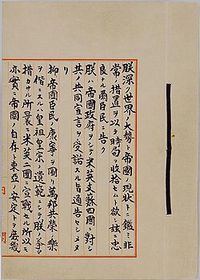 朕深ク世界ノ大勢ト帝國ノ現状トニ鑑ミ非
常ノ措置ヲ以テ時局ヲ收拾セムト欲シ茲ニ忠
良ナル爾臣民ニ告ク
朕ハ帝國政府ヲシテ米英支蘇四國ニ對シ
其ノ共同宣言ヲ受諾スル旨通告セシメタ
リ
抑〻帝國臣民ノ康寧ヲ圖リ萬邦共榮ノ樂
ヲ偕ニスルハ皇祖皇宗ノ遺範ニシテ朕ノ拳〻
措カサル所曩ニ米英二國ニ宣戰セル所以モ
亦實ニ帝國ノ自存ト東亞ノ安定トヲ庶幾